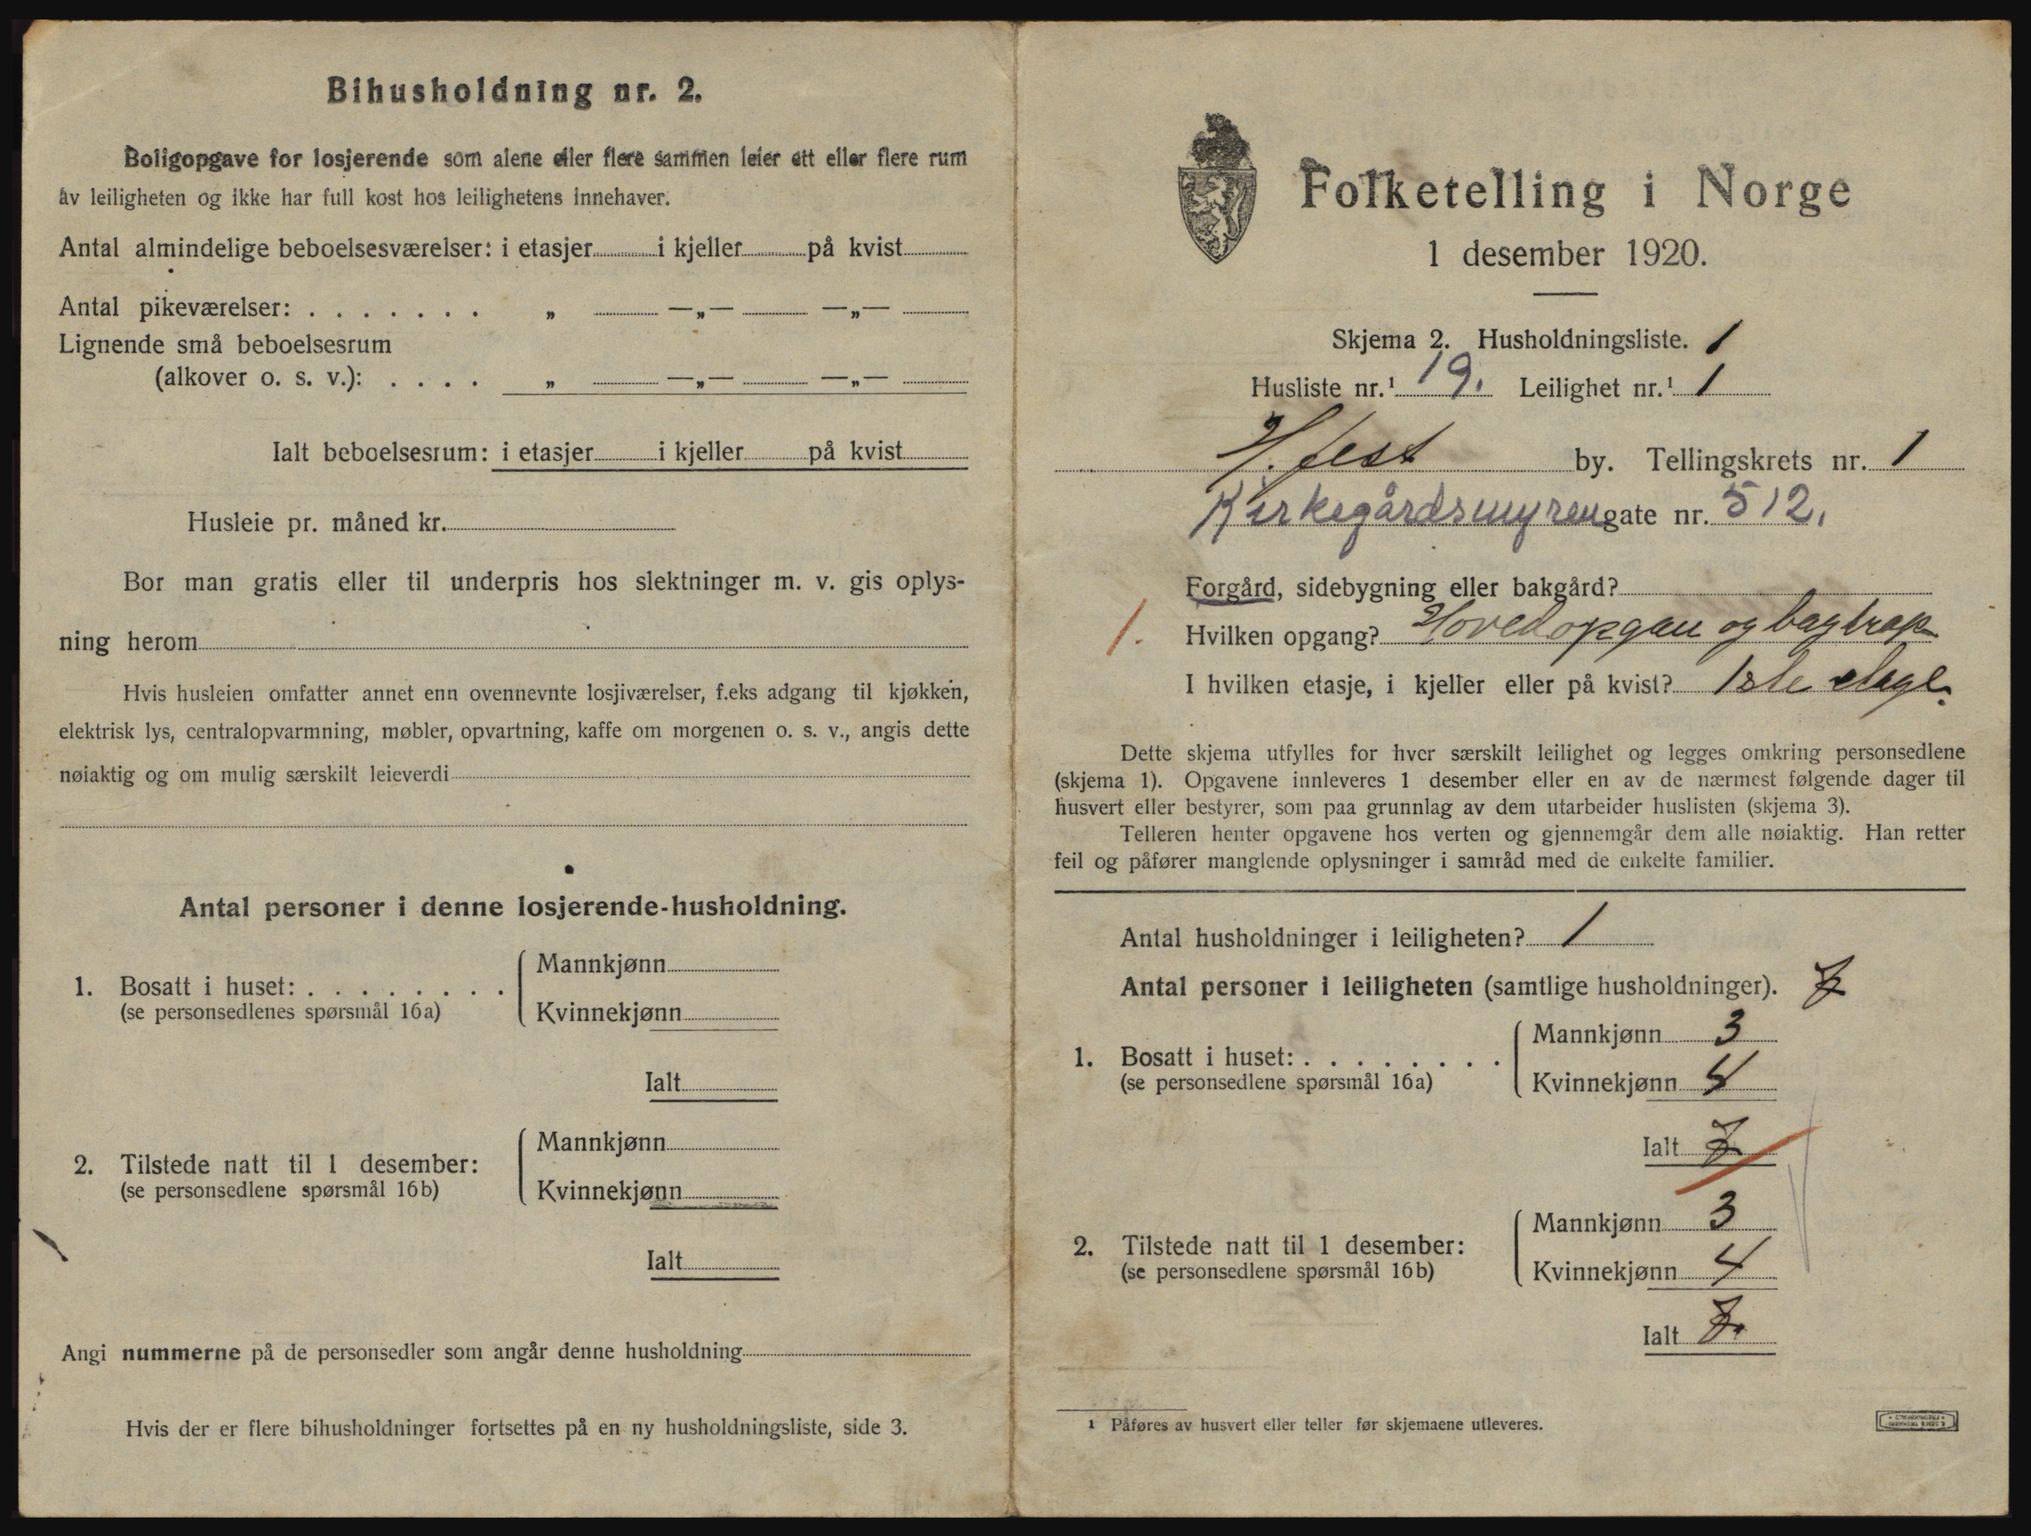 Bihusholdning nr. 2.
Boligopgave for losjerende som alene eller flere sammen leier ett eller flere rum
av leiligheten og ikke har full kost hos leilighetens innehaver.
Antal almindelige beboelsesværelser: i etasjer i kjeller på kvist
Antal pikeværelser: . . . . . . . „ —„— —„—
Lignende små beboelsesrum
(alkover o. s. v.): . . . . „ —„— —„—
Ialt beboelsesrum: i etasjer i kjeller på kvist
Husleie pr. måned kr.
Bor man gratis eller til underpris hos slektninger m. v. gis oplys-
ning herom
Hvis husleien omfatter annet enn ovennevnte losjiværelser, f.eks adgang til kjøkken,
elektrisk lys, centralopvarmning, møbler, opvartning, kaffe om morgenen o. s. v., angis dette
nøiaktig og om mulig særskilt leieverdi
Antal personer i denne losjerende-husholdning.
1. Bosatt i huset: . . . . . . . .
(se personsedlenes spørsmål 16a)
Mannkjønn
Kvinnekjønn
Ialt
2. Tilstede natt til 1 desember:
(se personsedlene spørsmål 16b)
Mannkjønn
Kvinnekjønn
Ialt
Angi nummerne på de personsedler som angår denne husholdning
Hvis der er flere bihusholdninger fortsettes på en ny husholdningsliste, side 3.
Folketelling i Norge
1 desember 1920.
Skjema 2. Husholdningsliste. 1
Husliste nr.¹ 19. Leilighet nr.¹ 1
H.fest by. Tellingskrets nr. 1
Kirkegårdsmyren gate nr. 512.
Forgård, sidebygning eller bakgård?
1. Hvilken opgang? Hovedopgan og bagtrap
I hvilken etasje, i kjeller eller på kvist? 1ste etage.
Dette skjema utfylles for hver særskilt leilighet og legges omkring personsedlene
(skjema 1). Opgavene innleveres 1 desember eller en av de nærmest følgende dager til
husvert eller bestyrer, som paa grunnlag av dem utarbeider huslisten (skjema 3).
Telleren henter opgavene hos verten og gjennemgår dem alle nøiaktig. Han retter
feil og påfører manglende oplysninger i samråd med de enkelte familier.
Antal husholdninger i leiligheten? 1
Antal personer i leiligheten (samtlige husholdninger). 7
1. Bosatt i huset: . . . . . . . .
(se personsedlene spørsmål 16a)
Mannkjønn 3
Kvinnekjønn 4
Ialt 7
2. Tilstede natt til 1 desember:
(se personsedlene spørsmål 16b)
Mannkjønn 3
Kvinnekjønn 4
Ialt 7.
¹ Påføres av husvert eller teller før skjemaene utleveres.